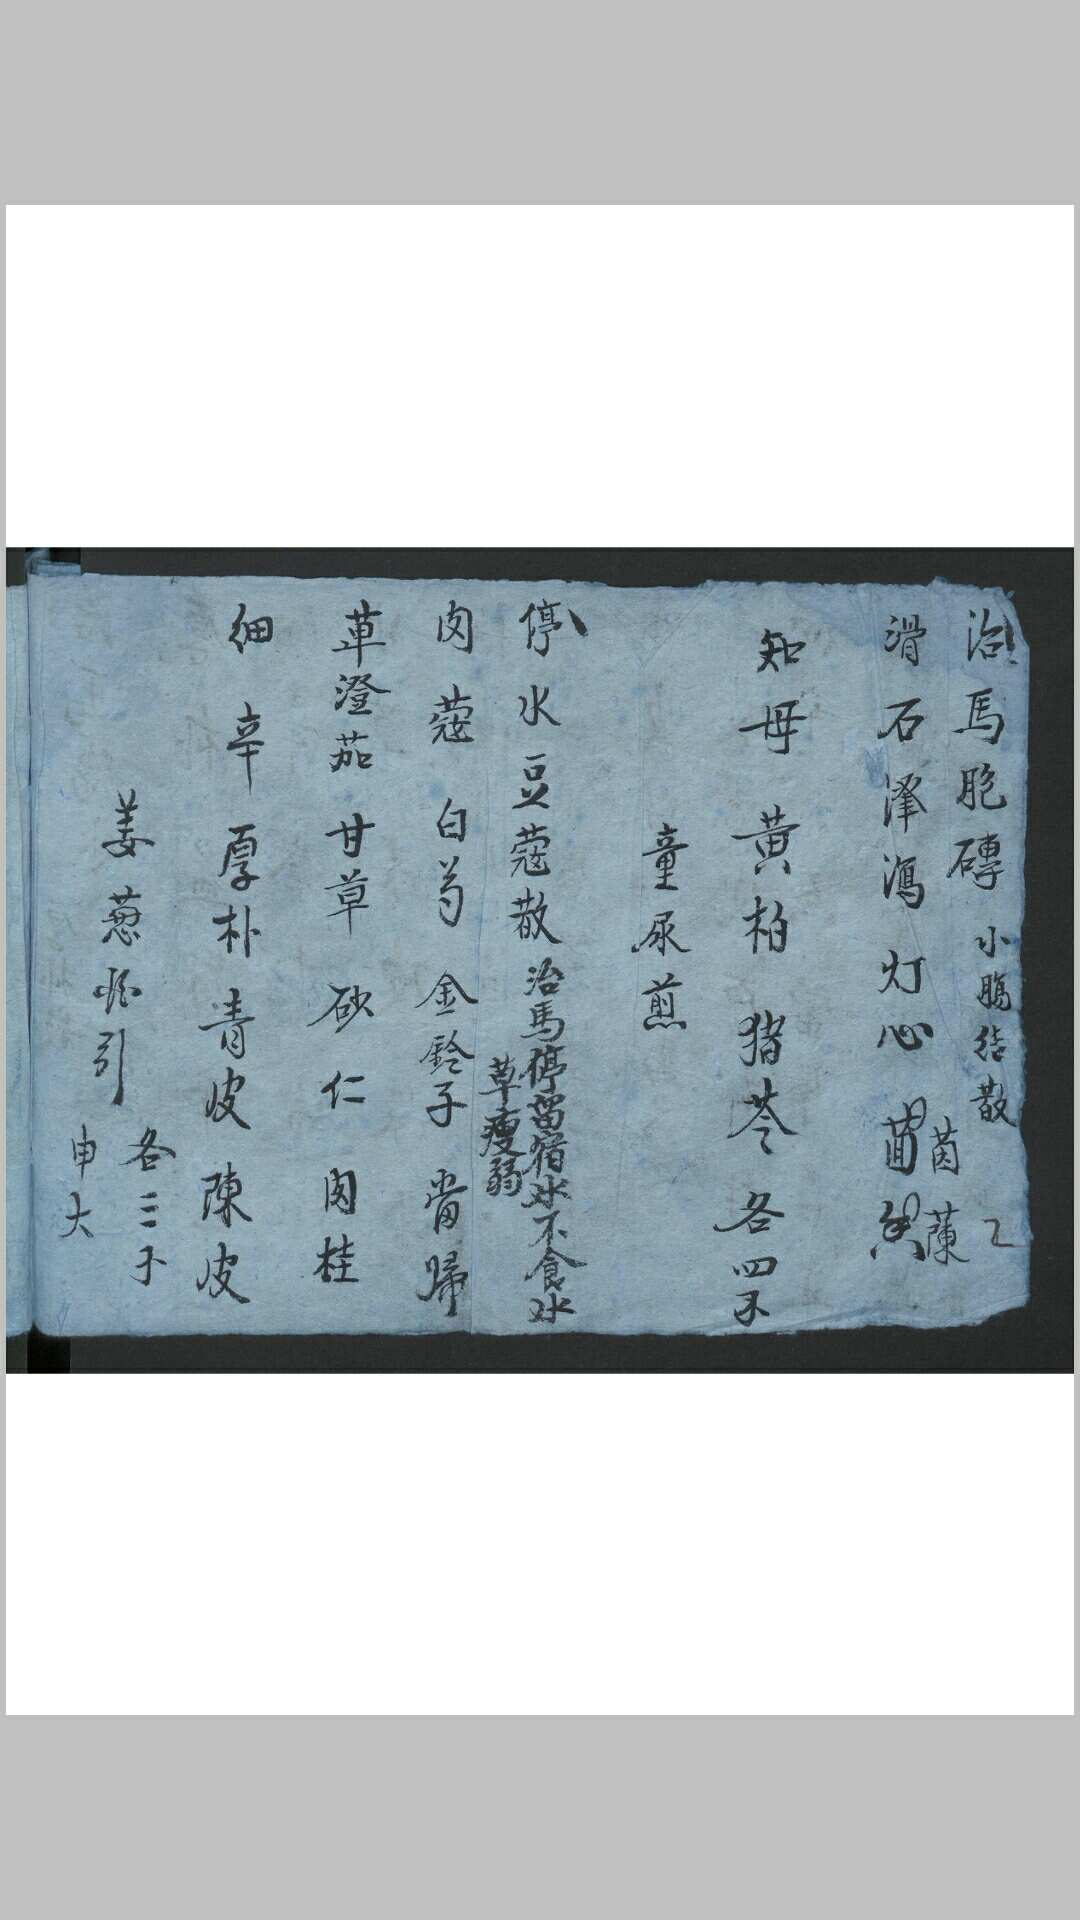 治馬胞磚 小腸結散
滑石 澤瀉 灯心 茵蔯
知母 黄柏 猪苓 各四
童尿煎
停水豆蔻散 治馬停留宿水不食水
草瘦弱
肉蔻 白芍 金鈴子 當歸
蓽澄茄 甘草 砂仁 肉桂
細辛 厚朴 青皮 陳皮
姜葱 引
各三
申大